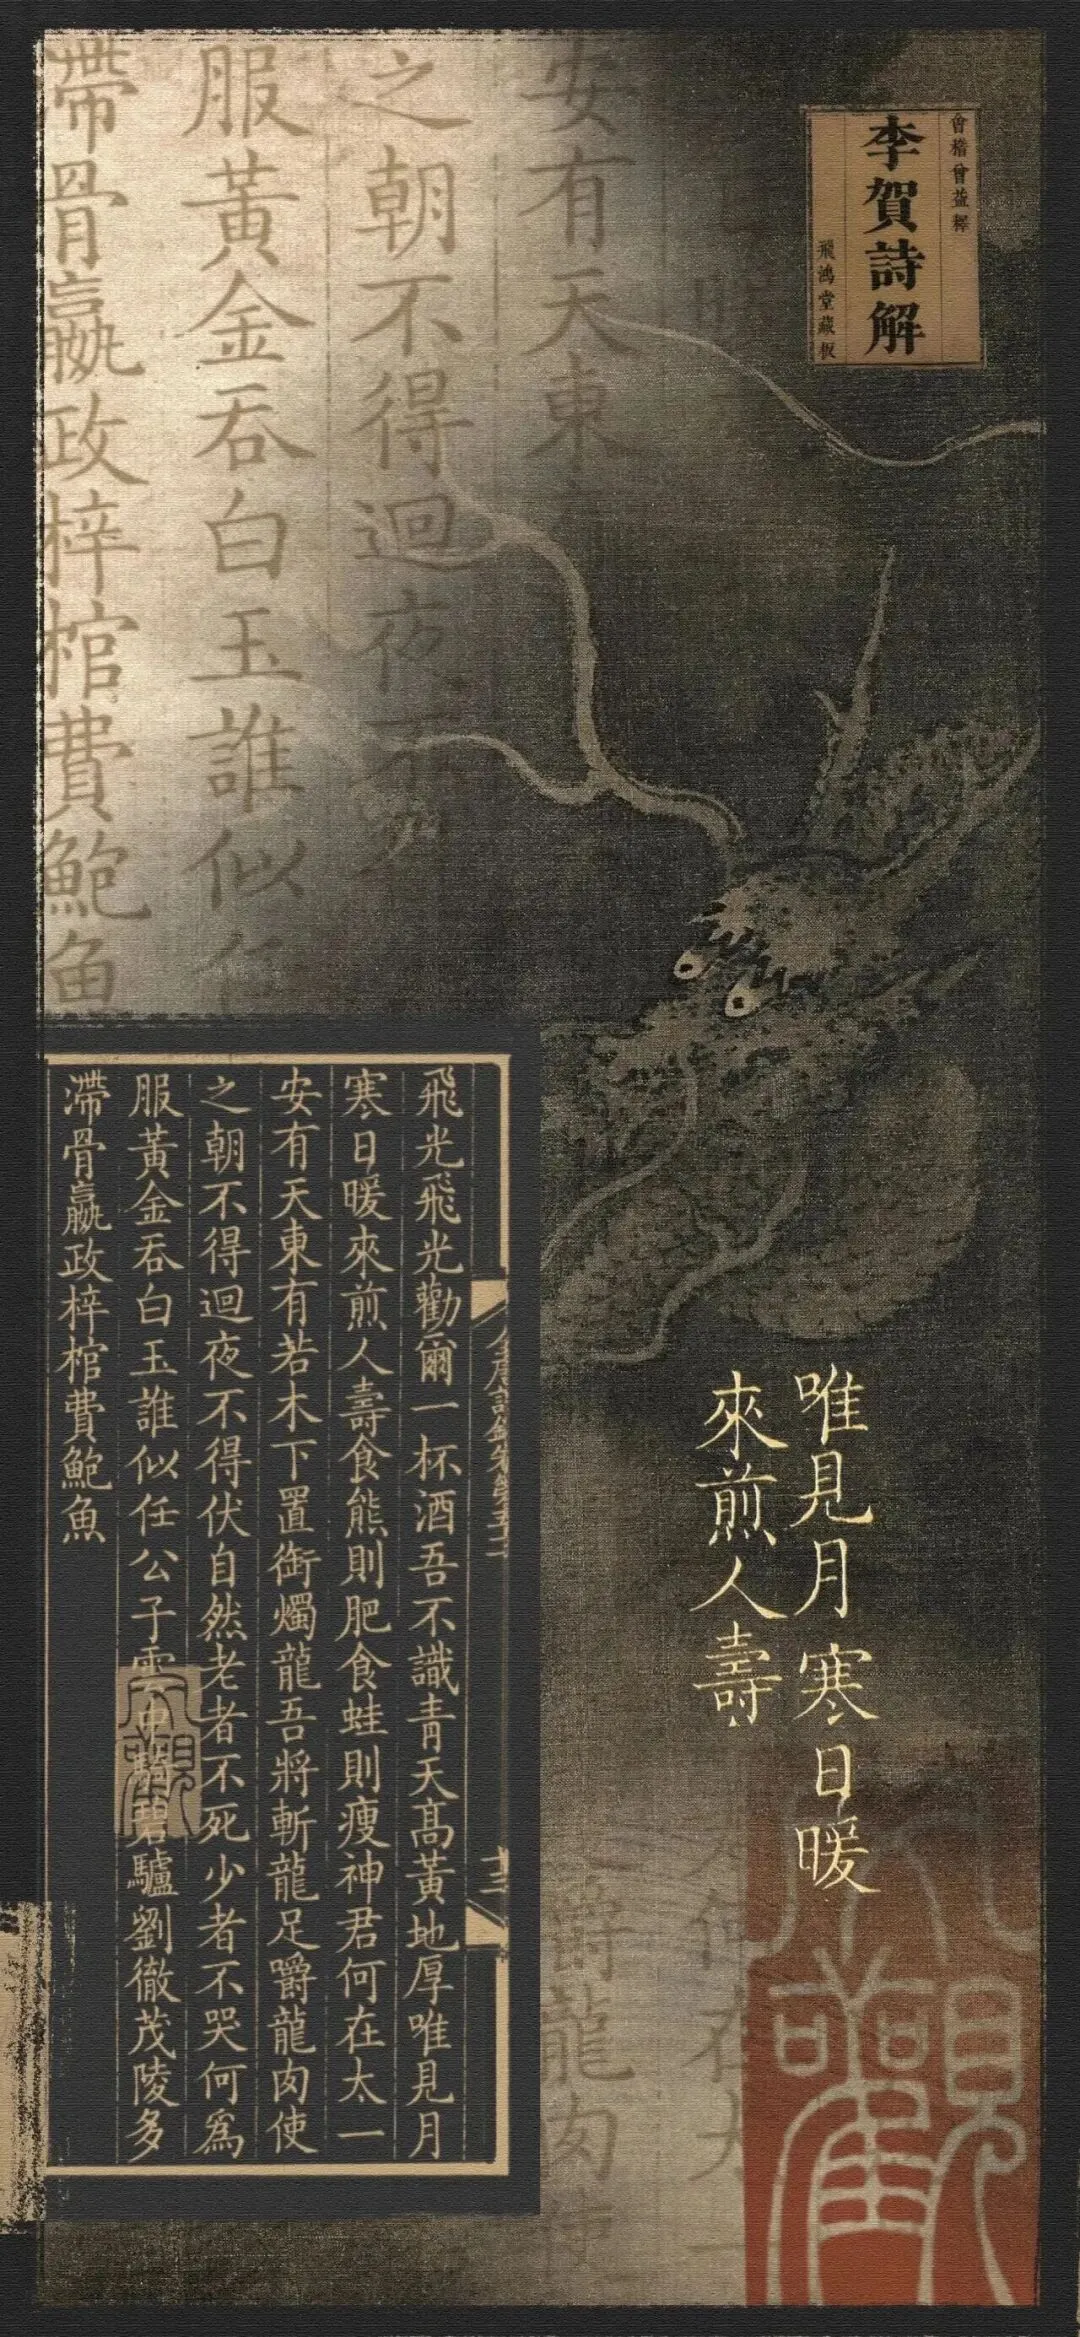 會稽曾益釋
李賀詩解
飛鴻堂藏板
安有天東
之朝不得迴夜不
服黃金吞白玉誰似任
滯骨嬴政梓棺費鮑魚
唯見月寒日暖
來煎人壽
飛光飛光勸爾一杯酒吾不識青天高黃地厚唯見月
寒日暖來煎人壽食熊則肥食蛙則瘦神君何在太一
安有天東有若木下置銜燭龍吾將斬龍足嚼龍肉使
之朝不得迴夜不得伏自然老者不死少者不哭何為
服黃金吞白玉誰似任公子雲中騎碧驢劉徹茂陵多
滯骨嬴政梓棺費鮑魚
十三
嚼龍肉使